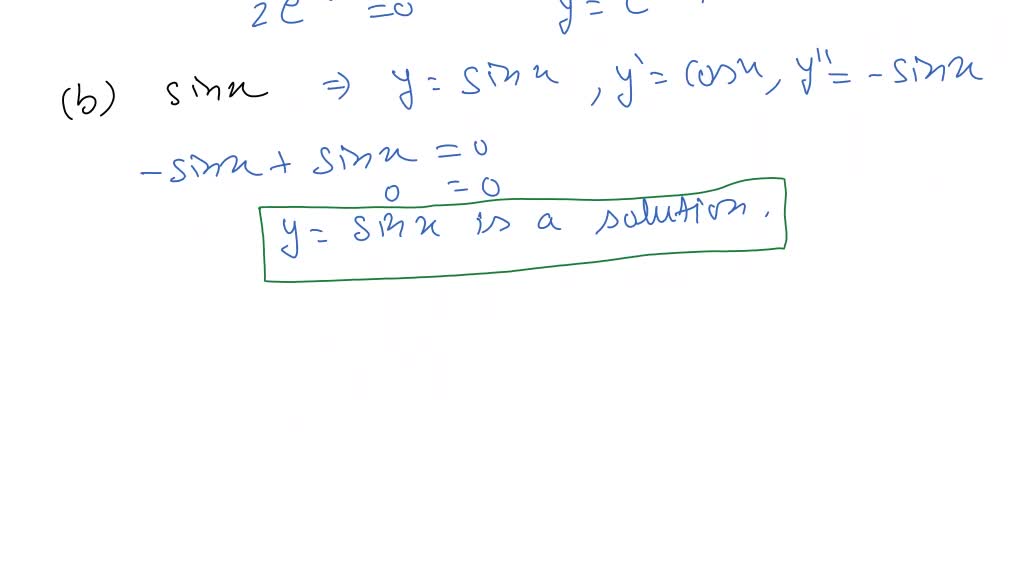 2e =0 y =
(b) sinx ⇒ y = sinx , y' = cosx, y'' = -sinx
-sinx + sinx = 0
0 = 0
y = sinx is a solution.